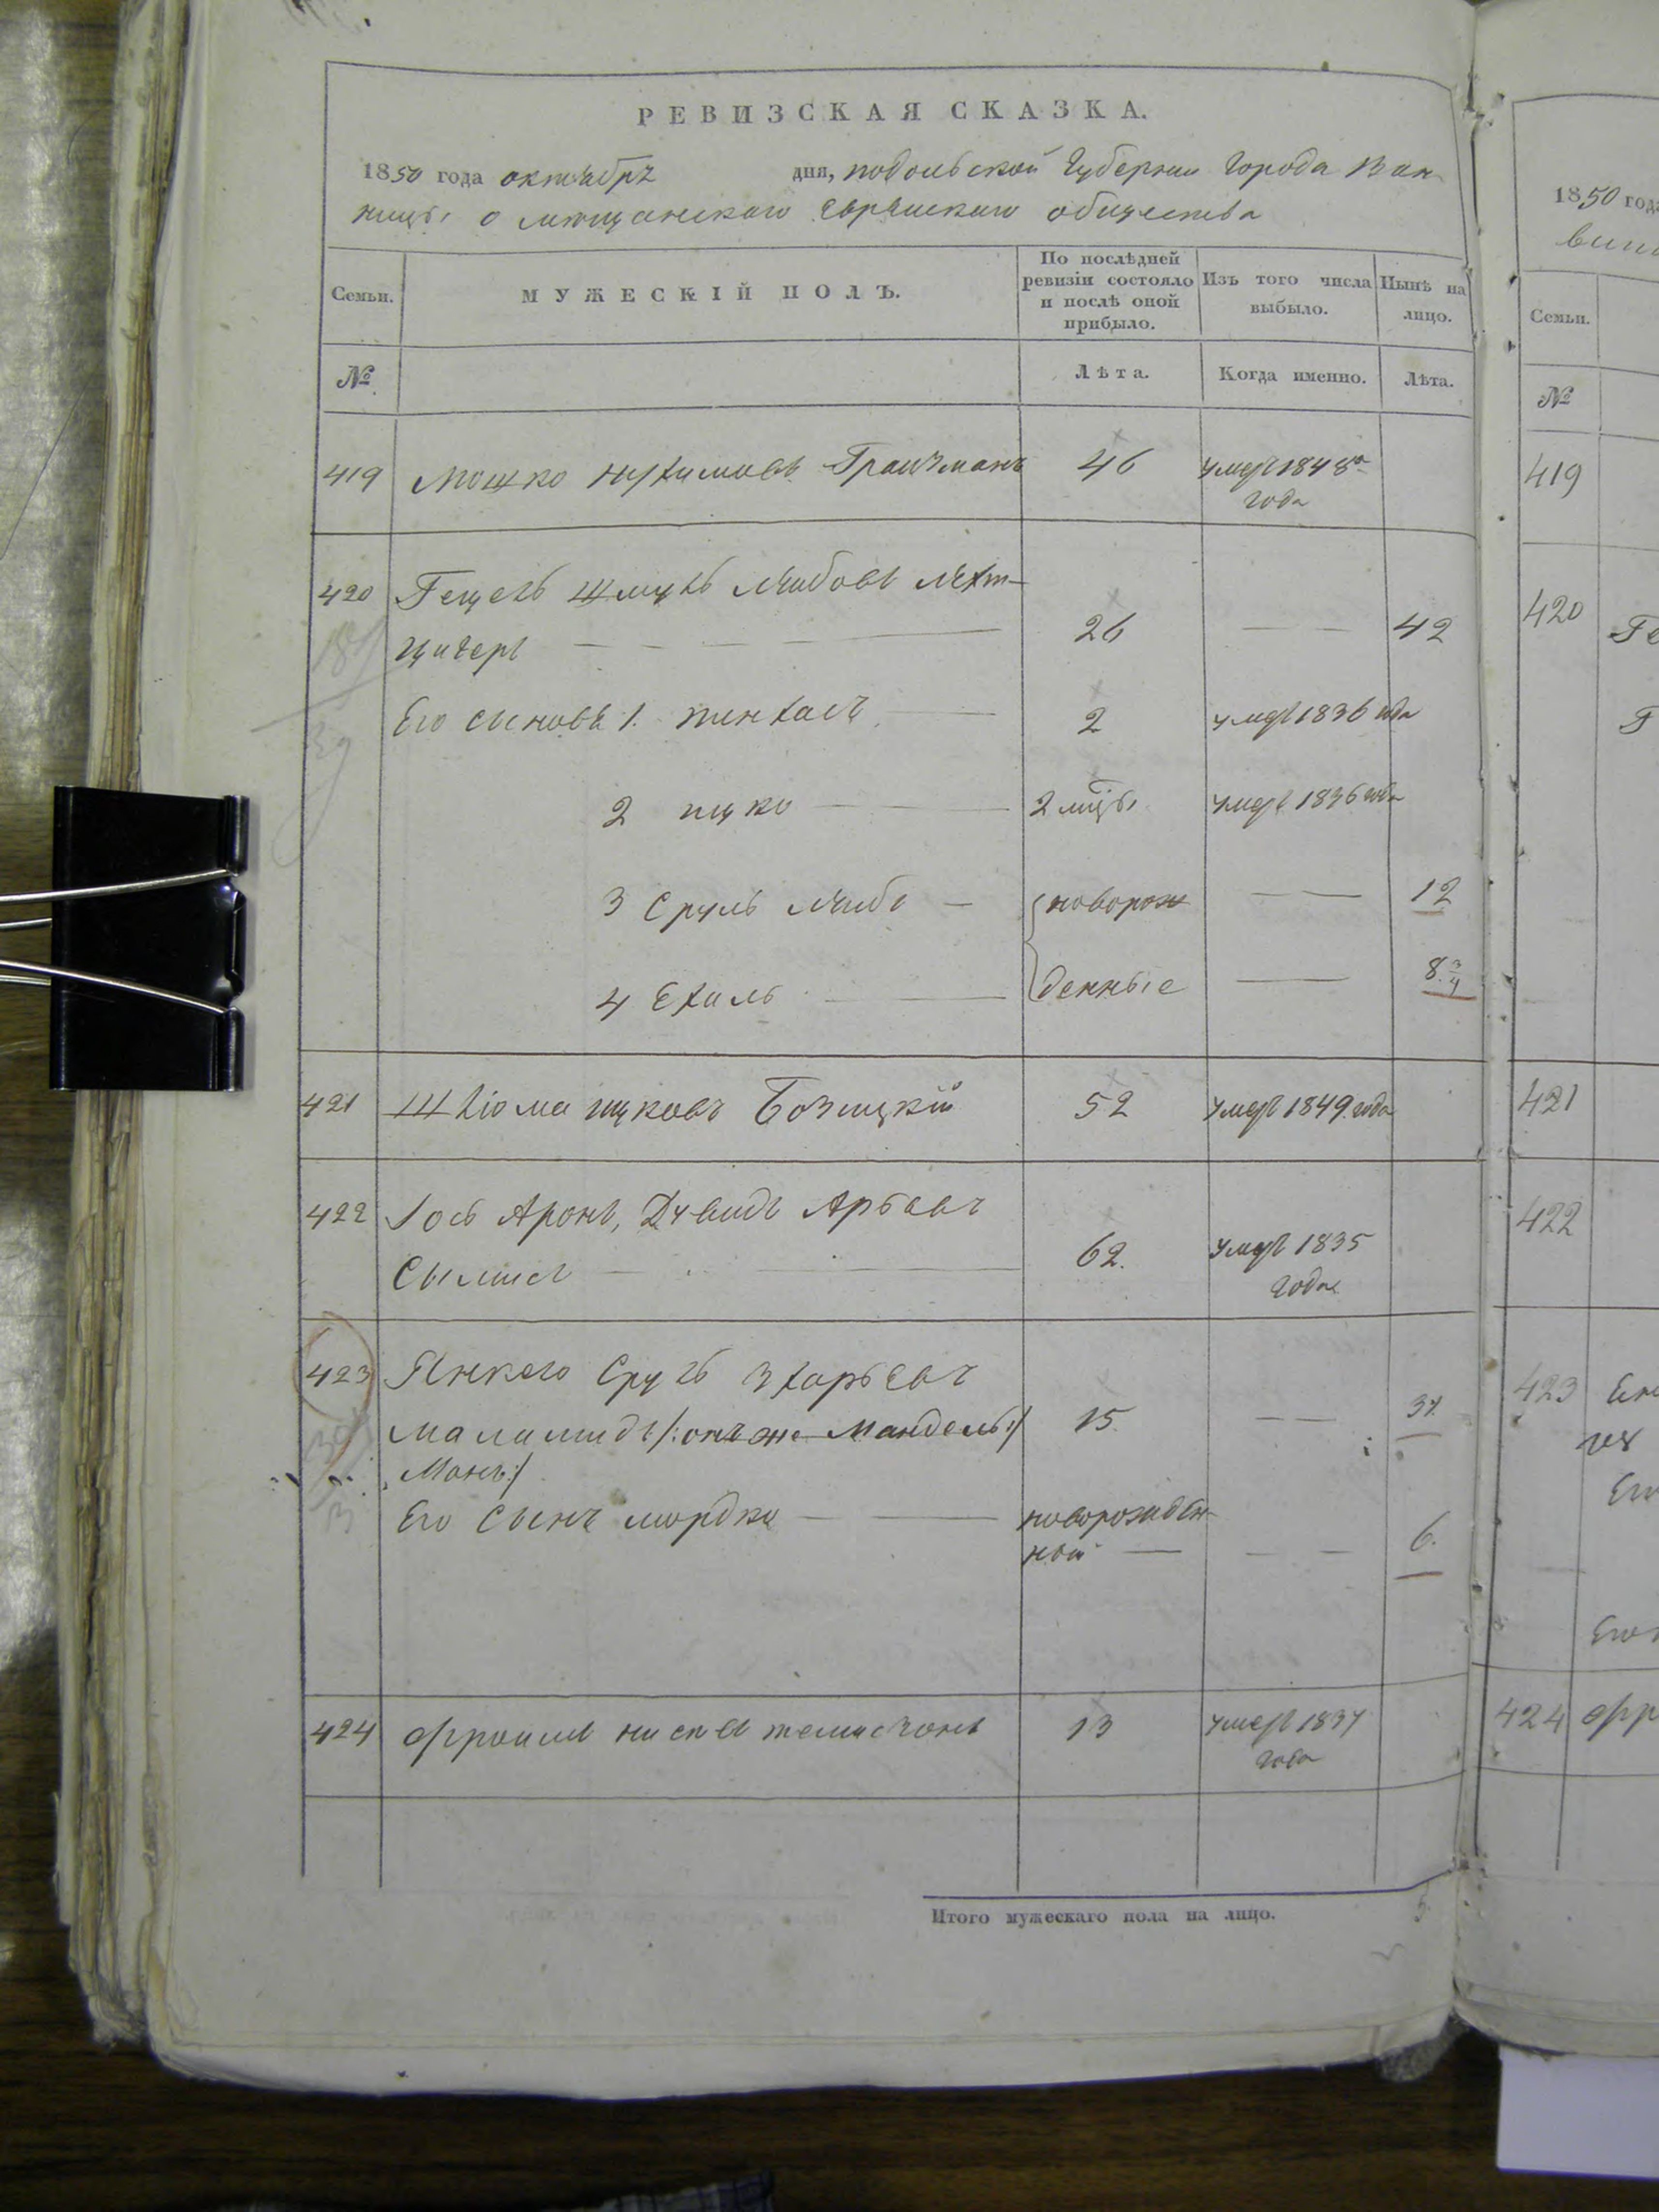 РЕВИЗСКАЯ СКАЗКА.
1850 года октября дня, подольской Губернии Города Вин-
ницы о мещанскаго еврейскаго общества
Семьи.
МУЖЕСКІЙ ПОЛЪ.
По послѣдней ревизіи состояло и послѣ оной прибыло.
Изъ того числа выбыло.
Нынѣ на лицо.
№
Лѣта.
Когда именно.
Лѣта.
419 Мошко Нухимовъ 46 умеръ 1848го
года
420 Гецель Шмуль Лейбовъ Лехт-
цигеръ 26 42
Его сыновья 1. пинхасъ 2 умеръ 1836 года
2 ицко 2 мцы умеръ 1836 года
3 Сруль Лейба новорож 12
4 Ехиль денные 8 3/4
421 Шліома ицковъ Бозицкій 52 умеръ 1849 года
422 Іось Аронъ, Дувидъ Арьевъ
62. умеръ 1835
года
423 Янкель Сруль Зхарьевъ
маламидъ /:онъ же Мандель:/ 15 31.
Манъ:/
Его сынъ мордко новорожден-
ный 6.
424 Фроимъ 13 умеръ 1837
года
Итого мужескаго пола на лицо. 5
1850 года
вин
Семьи.
№
419
420 Ге
421
422
423
Его
424 Фр